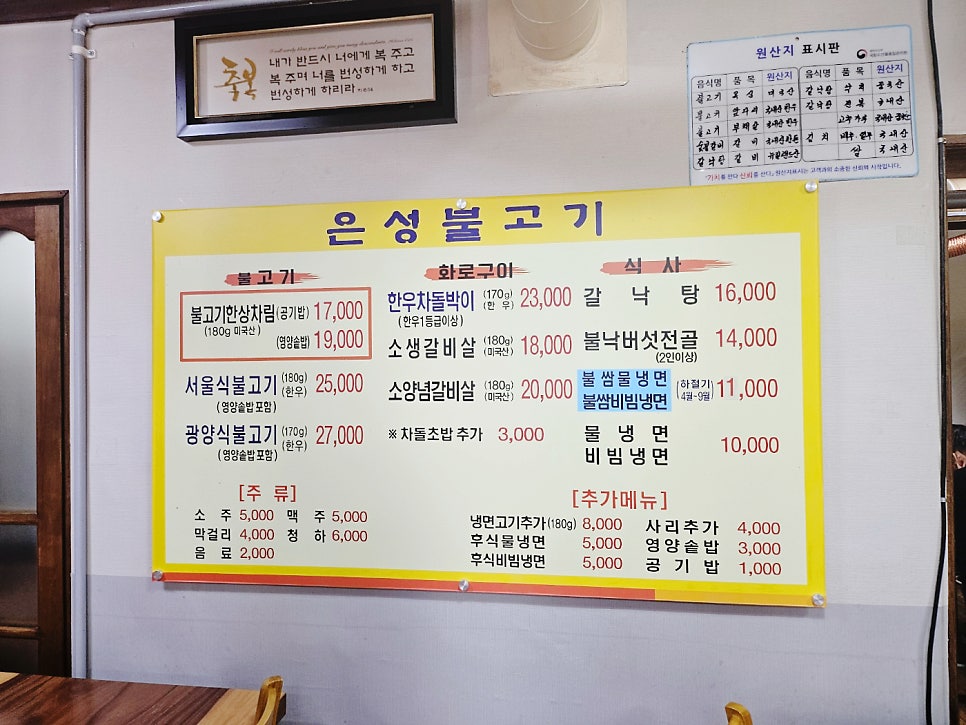 축복
내가 반드시 너에게 복 주고
복 주며 너를 번성하게 하고
번성하게 하리라
원산지 표시판
음식명 품목 원산지 음식명 품목 원산지
불고기
불고기
불고기
갈비
갈낙탕 갈비
갈낙탕
갈낙탕 국내산
고추가루
김치 국내산
쌀 국내산
"가치를 판다 신뢰를 산다" 원산지표시는 고객과의 소중한 신뢰의 시작입니다.
은성불고기
불고기
불고기한상차림(공기밥) 17,000
(180g 미국산)
(영양솥밥) 19,000
서울식불고기 (180g) (한우) 25,000
(영양솥밥 포함)
광양식불고기 (170g) (한우) 27,000
(영양솥밥 포함)
화로구이
한우차돌박이 (170g) (한우) 23,000
(한우1등급이상)
소생갈비살 (180g) (미국산) 18,000
소양념갈비살 (180g) (미국산) 20,000
※ 차돌초밥 추가 3,000
식사
갈낙탕 16,000
불낙버섯전골 14,000
(2인이상)
불쌈물냉면
불쌈비빔냉면 (하절기 4월~9월) 11,000
물냉면
비빔냉면 10,000
[주류]
소주 5,000 맥주 5,000
막걸리 4,000 청하 6,000
음료 2,000
[추가메뉴]
냉면고기추가(180g) 8,000 사리추가 4,000
후식물냉면 5,000 영양솥밥 3,000
후식비빔냉면 5,000 공기밥 1,000